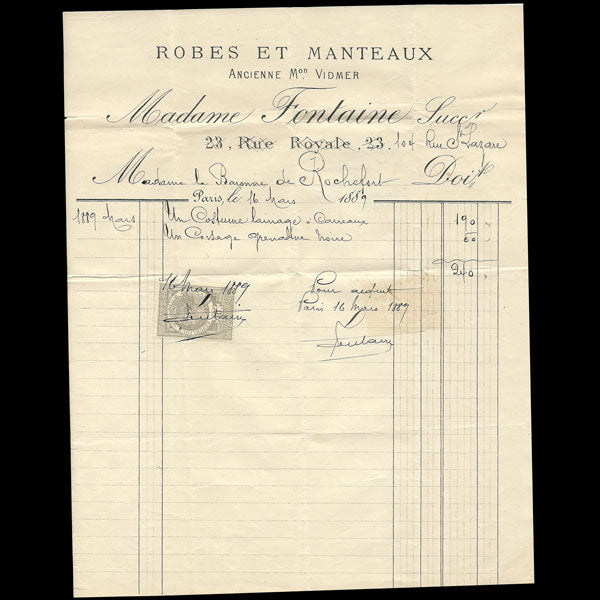 ROBES ET MANTEAUX
ANCIENNE Mon VIDMER
Madame Fontaine Succr
23, Rue Royale, 23, 104 Rue St Lazare
Madame la Baronne de Rochefort Doit
Paris, le 16 Mars 1889
1889 Mars Un Costume lainage à Carreaux 190 "
Un Corsage grenadine noire 50 "
240 "
16 Mars 1889 Pour acquit
Fontaine Paris 16 Mars 1889
Fontaine